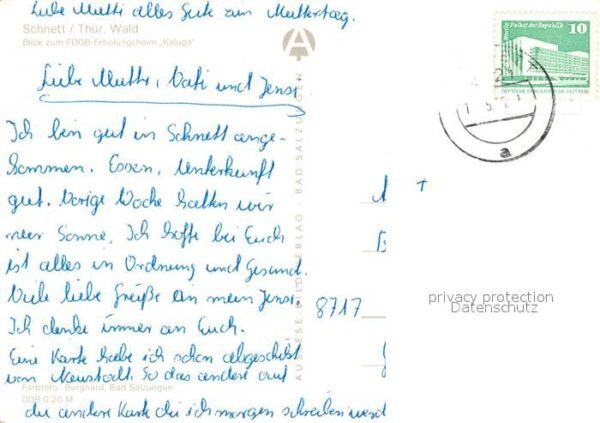 Liebe Mutti alles Gute zum Muttertag.
Schnett / Thür. Wald
Blick zum FDGB-Erholungsheim „Kaluga"
Liebe Mutti, Vati und Jens!
Ich bin gut in Schnett ange-
kommen. Essen, Unterkunft
gut. Vorige Woche hatten wir
nur Sonne. Ich hoffe bei Euch
ist alles in Ordnung und Gesund.
Viele liebe Grüße an mein Jens.
Ich denke immer an Euch.
Eine Karte habe ich schon abgeschickt
von Neustadt. So das andere auf
die andere Karte die ich morgen schreiben werd
Farbfoto: Berghard, Bad Salzungen
DDR 0,20 M
AUSLESE-BILD-VERLAG · BAD SALZUNGEN
Palast der Republik
10
8717
a
privacy protection
Datenschutz